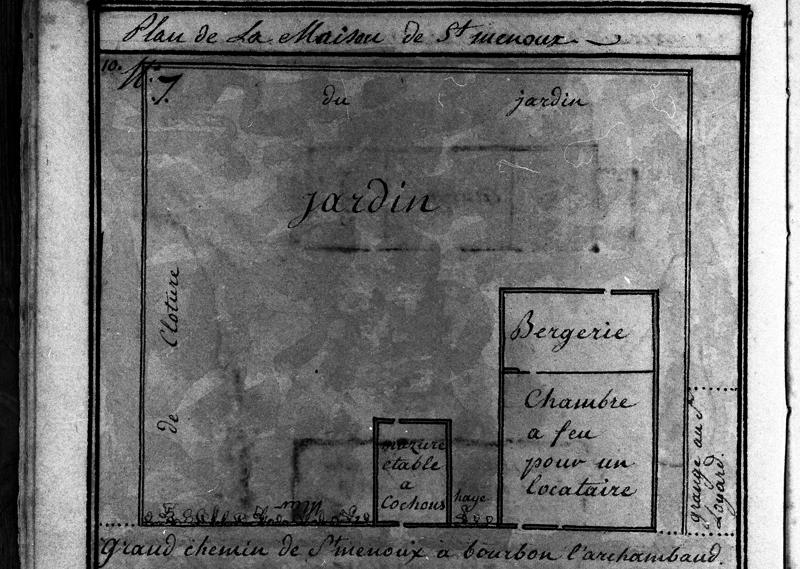 Plan de La Maison de St menoux
10. N.º 7.
du jardin
jardin
de Cloture
Bergerie
Chambre
a feu
pour un
locataire
mazure
etable
a
Cochons
haye
grange au Sr
Loyard.
Grand chemin de St menoux a bourbon l'archambaud.